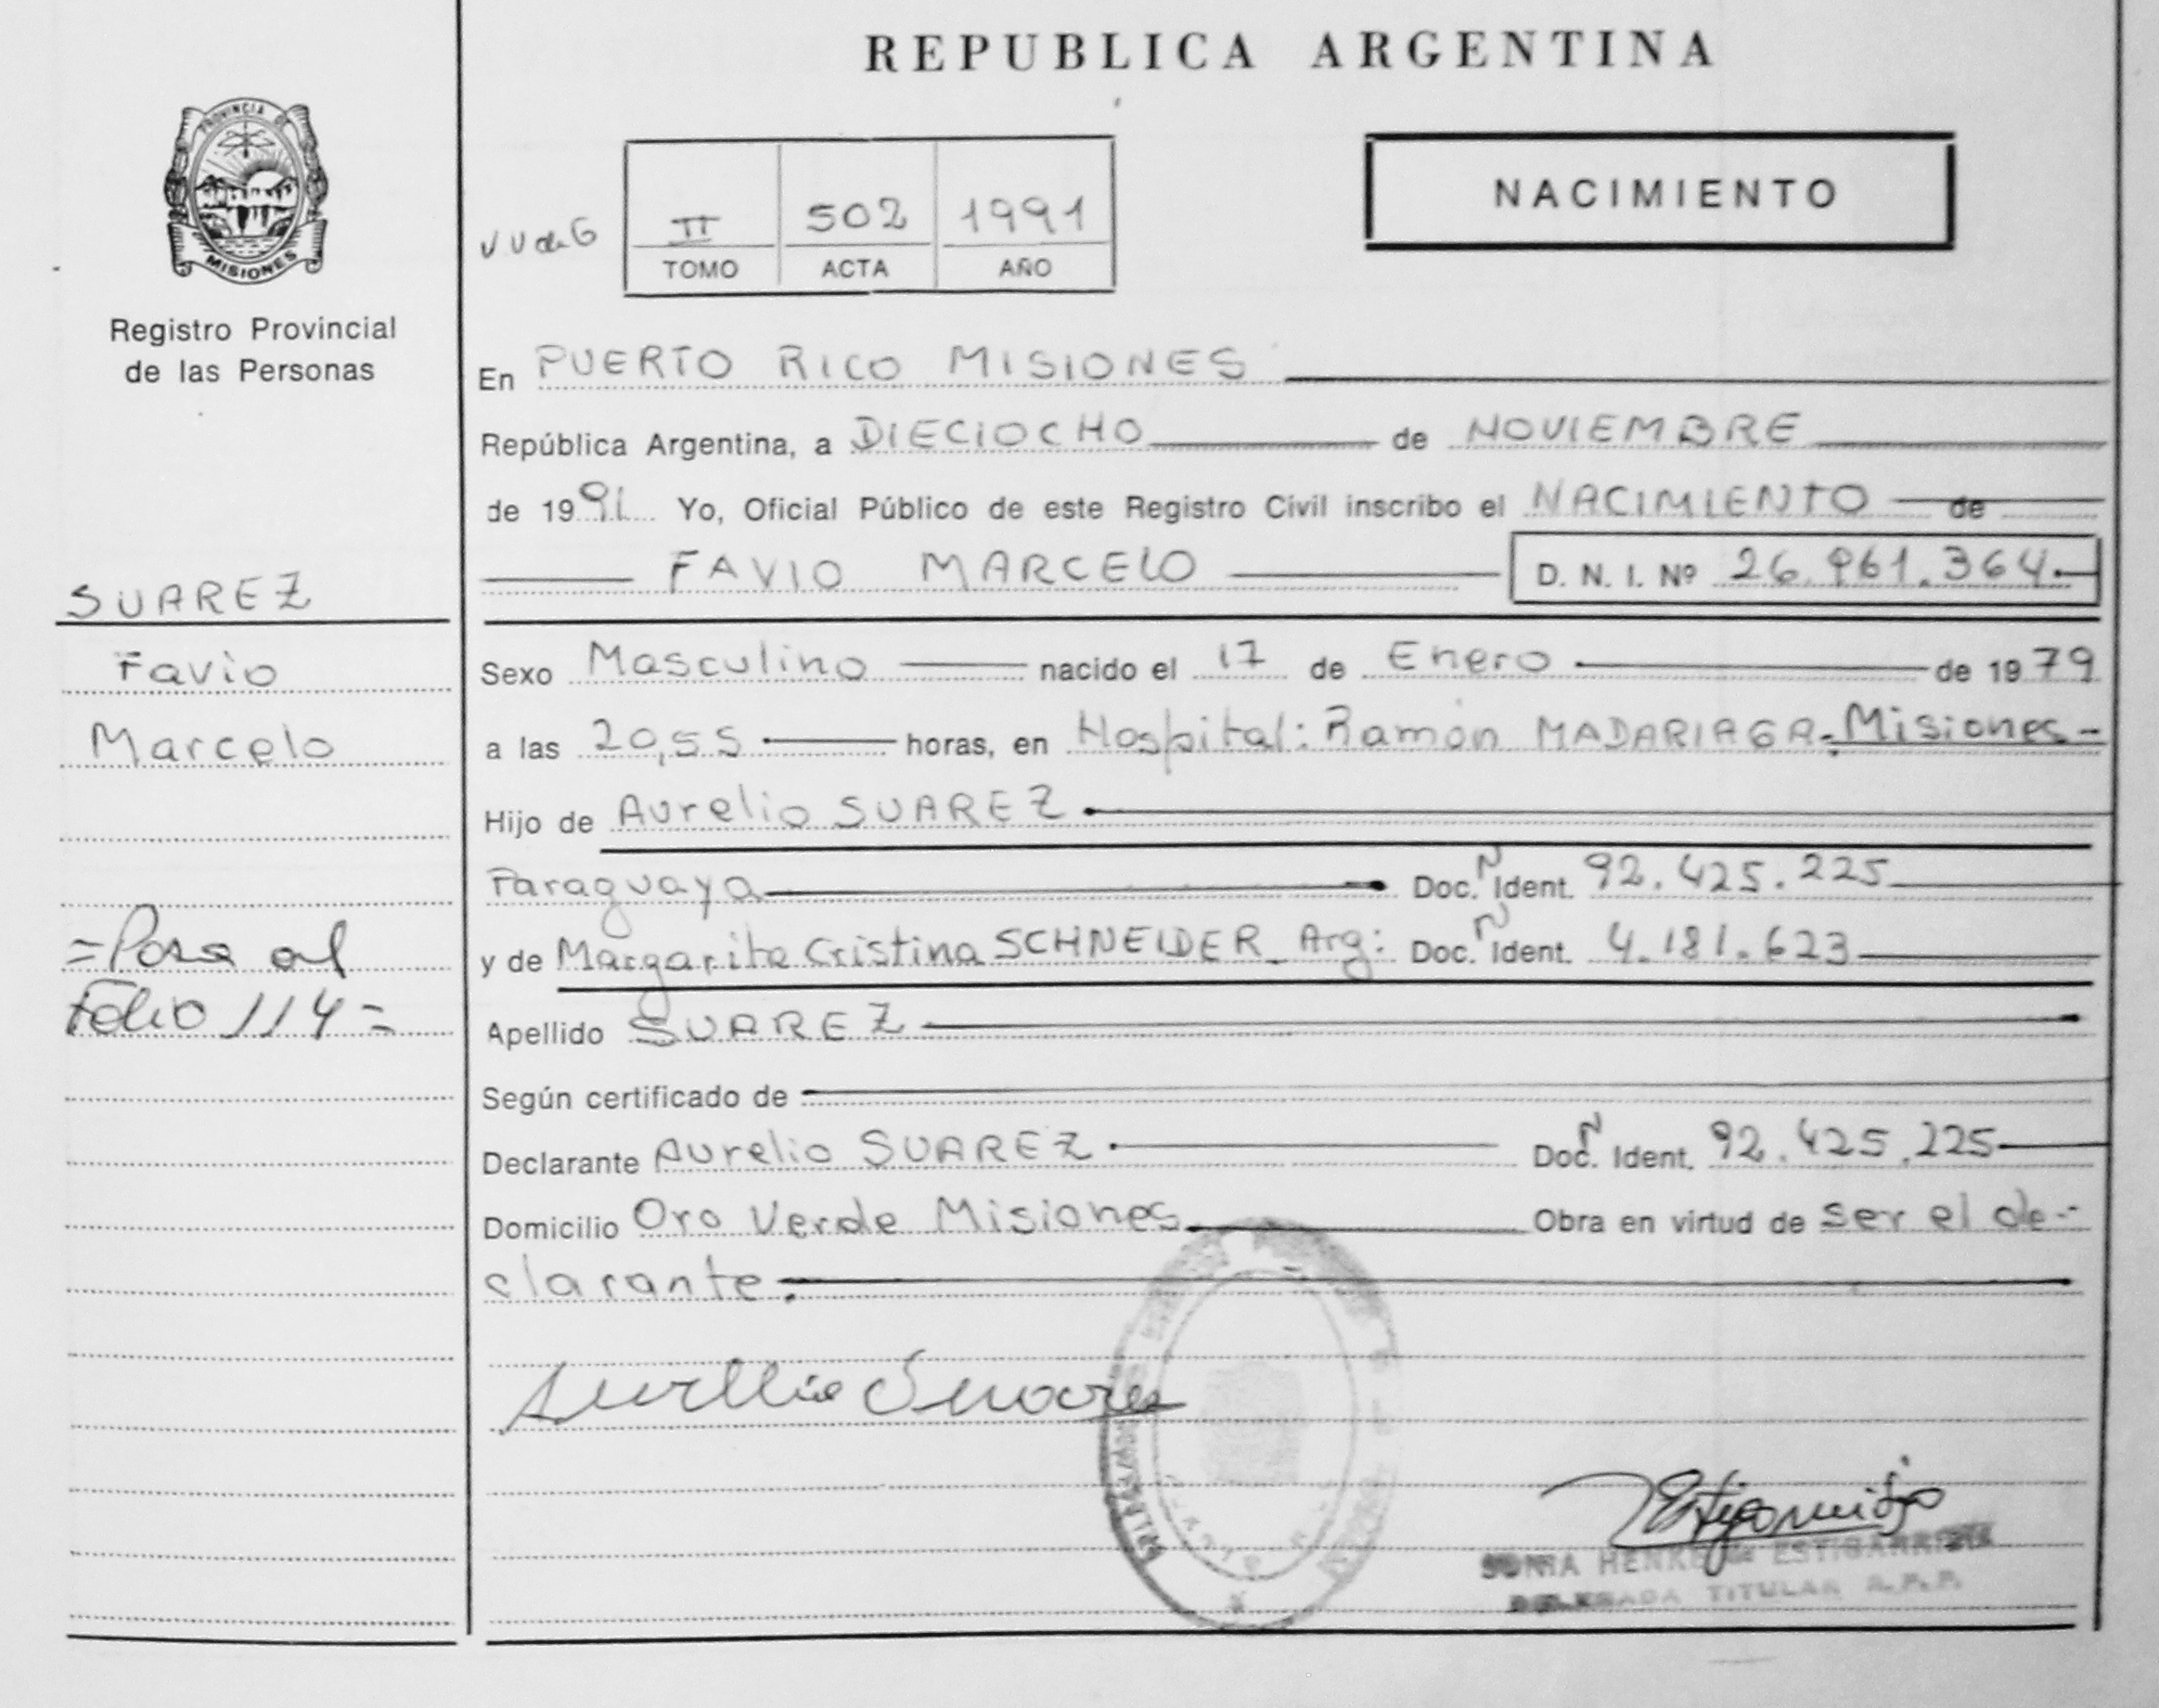 REPUBLICA ARGENTINA
PROVINCIA DE
MISIONES
Registro Provincial
de las Personas
II 502 1991
TOMO ACTA AÑO
NACIMIENTO
En PUERTO RICO MISIONES
República Argentina, a DIECIOCHO de NOVIEMBRE
de 1991 Yo, Oficial Público de este Registro Civil inscribo el NACIMIENTO de
FAVIO MARCELO D. N. I. Nº 26.961.364.
SUAREZ
Favio
Marcelo
=Pasa al
Folio 114=
Sexo Masculino nacido el 17 de Enero de 1979
a las 20,55 horas, en Hospital: Ramón MADARIAGA-Misiones-
Hijo de Aurelio SUAREZ
Paraguaya Doc. N Ident. 92.425.225
y de Margarita Cristina SCHNEIDER Arg: Doc. N Ident. 4.181.623
Apellido SUAREZ
Según certificado de
Declarante Aurelio SUAREZ Doc. N Ident. 92.425.225
Domicilio Oro Verde Misiones Obra en virtud de ser el de-
clarante.
Aurelio Suarez
SONIA HENKE de ESTIGARRIBIA
DELEGADA TITULAR R.P.P.